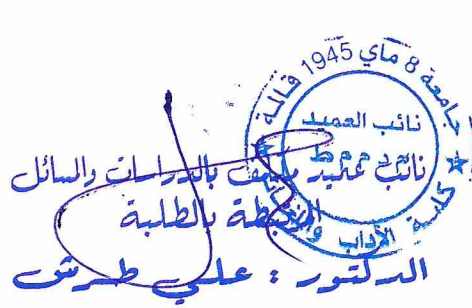 جامعة 8 ماي 1945 قالمة
كلية الآداب واللغات
نائب العميد
نائب عميد مكلف بالدراسات والمسائل
المرتبطة بالطلبة
الدكتور : علي طرش